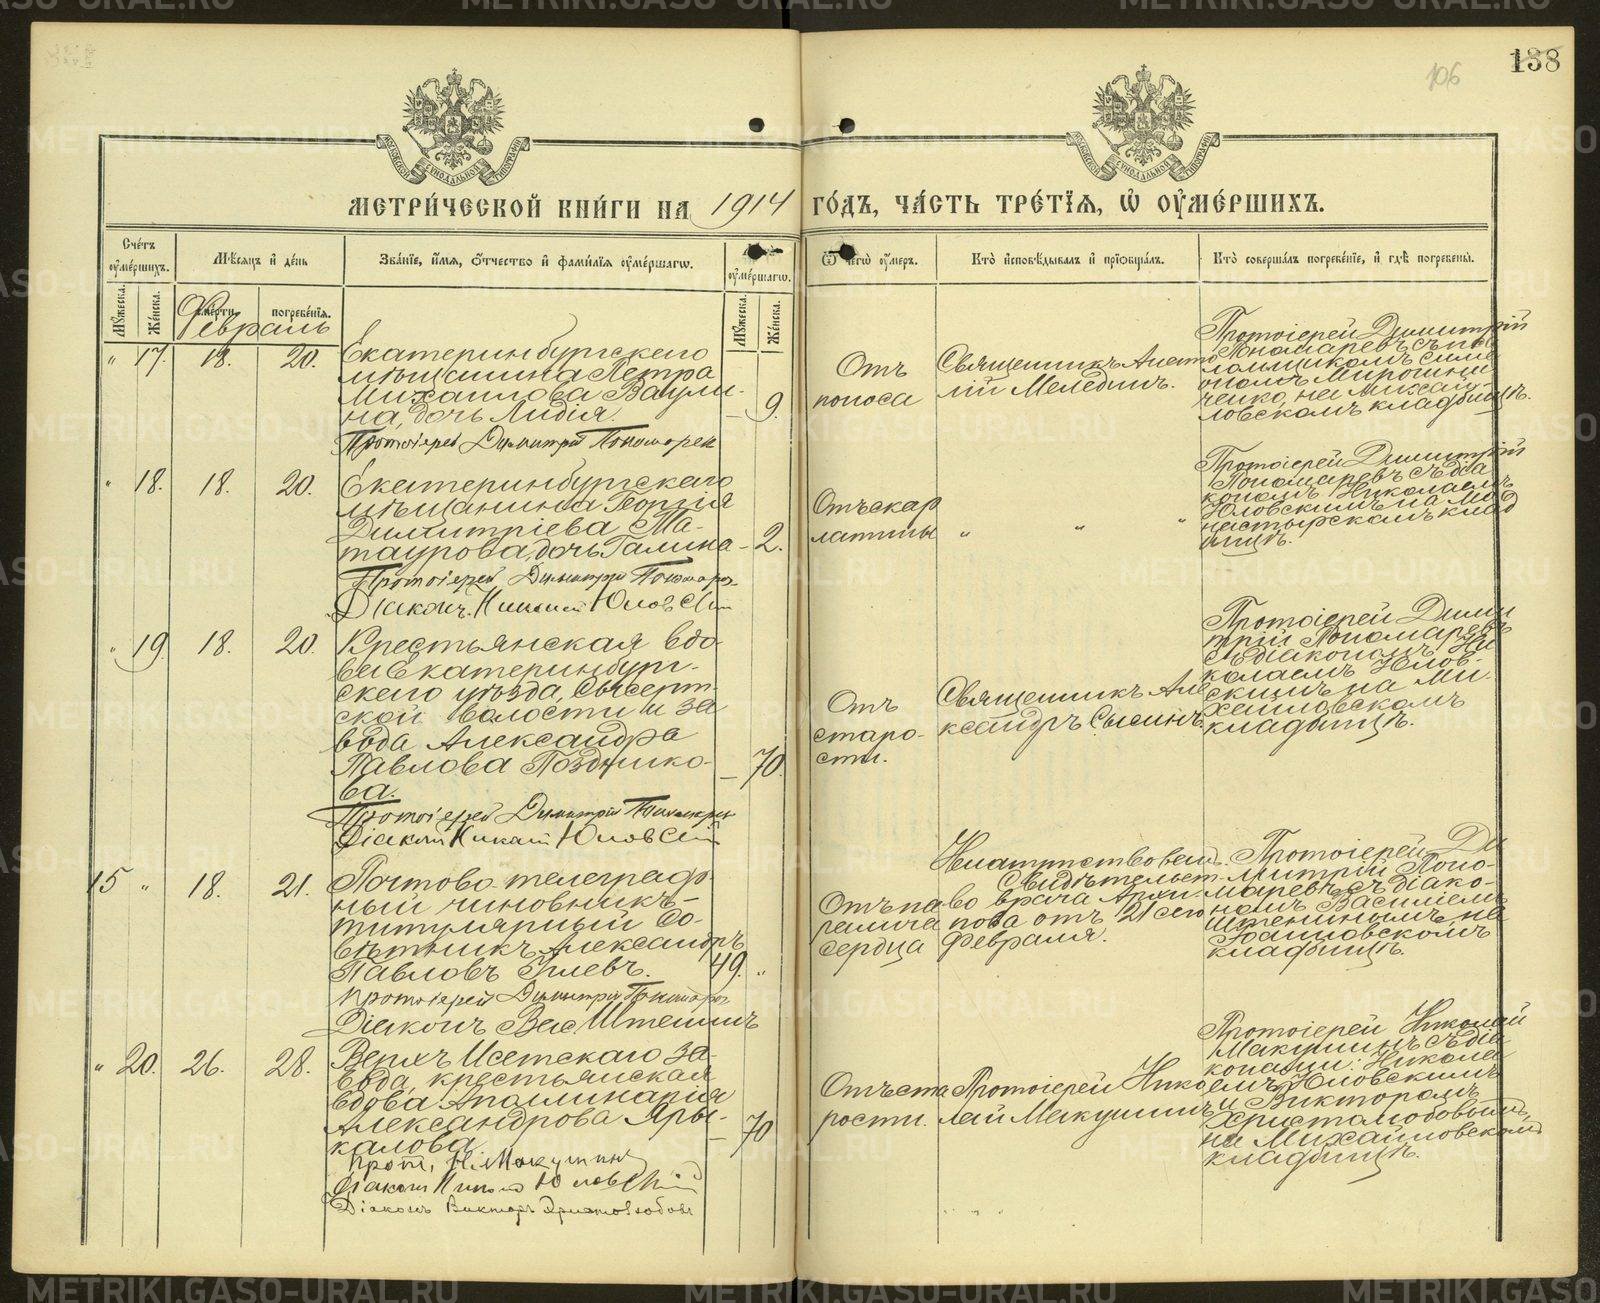 138
106
МОСКОВСКОЙ СѴНОДАЛЬНОЙ ТИПОГРАФІИ
МОСКОВСКОЙ СѴНОДАЛЬНОЙ ТИПОГРАФІИ
МЕТРИ́ЧЕСКОЙ КНИ́ГИ НА 1914 ГО́ДЪ, ЧА́СТЬ ТРЕ́ТІѦ, Ѡ ОУ҆МЕ́РШИХЪ.
Сче́тъ оу҆ме́ршихъ.
Мѣ́сѧцъ и҆ де́нь
Зва́нїе, и҆́мѧ, ѻ҆́тчество и҆ фами́лїѧ оу҆ме́ршагѡ.
оу҆ме́ршагѡ.
Ѿ чегѡ̀ оу҆́меръ.
Кто̀ и҆сповѣ́дывалъ и҆ прїѡбща́лъ.
Кто̀ соверша́лъ погребе́нїе, и҆ гдѣ̀ погребены̀.
Мꙋ́жеска.
Же́нска.
сме́рти
погребе́нїѧ.
Мꙋ́жеска.
Же́нска.
Февраль
" 17. 18. 20.
Екатеринбургскаго
мѣщанина Петра
Михаилова Ваули-
на, дочь Лидія
— 9.
Протоіерей Димитрій Пономарев
Отъ
поноса
Священникъ Анато
лій Меледин.
Протоіерей Димитрій
Пономаревъ съ пса
ломщикомъ Симе
ономъ Мирошни
ченко, на Михай-
ловскомъ кладбищѣ.
" 18. 18. 20.
Екатеринбургскаго
мѣщанина Георгія
Димитріева Ма-
таурова, дочь Галина
— 2.
Протоіерей Димитрій Пономарев
Діаконъ Николай Юловскій
Отъ скар
латины
" " "
Протоіерей Димитрій
Пономаревъ съ діа
кономъ Николаемъ
Юловскимъ на Мо
настырскомъ клад
бищѣ.
" 19. 18. 20.
Крестьянская вдо-
ва Екатеринбург-
скаго уѣзда, Сысерт-
ской волости и за
вода Александра
Павлова Позднико-
ва.
— 70.
Протоіерей Димитрій Пономарев
Діаконъ Николай Юловскій
Отъ
старо-
сти.
Священникъ Але
ксандръ Сысинъ.
Протоіерей Дими
трій Пономаревъ
съ діакономъ Ни
колаемъ Юлов-
скимъ на Ми-
хайловскомъ
кладбищѣ.
15 " 18. 21.
Почтово-телеграф-
ный чиновникъ-
титулярный со-
вѣтникъ Александръ
Павловъ
49. "
Протоіерей Димитрій Пономарев
Діаконъ Вас Штенинъ
Отъ па
ралича
сердца
Напутствован.
Свидѣтельст-
во врача Архи-
пова отъ 21 сего
Февраля.
Протоіерей Ди
митрій Поно-
маревъ съ діако-
номъ Василіемъ
Штенинымъ, на
Іоанновскомъ
кладбищѣ.
" 20. 26. 28.
Верхъ Исетскаго за-
вода, крестьянская
вдова Аполлинарія
Александрова Яры-
калова
— 70
Прот. Н. Макушинъ
Діаконъ Николай Юловскій
Діаконъ Викторъ Христолюбовъ
Отъ ста
рости.
Протоіерей Нико
лай Макушинъ
Протоіерей Николай
Макушинъ съ діа
конами: Никола
емъ Юловскимъ
и Викторомъ
Христолюбовымъ,
на Михайловскомъ
кладбищѣ.
METRIKI.GASO-URAL.RU